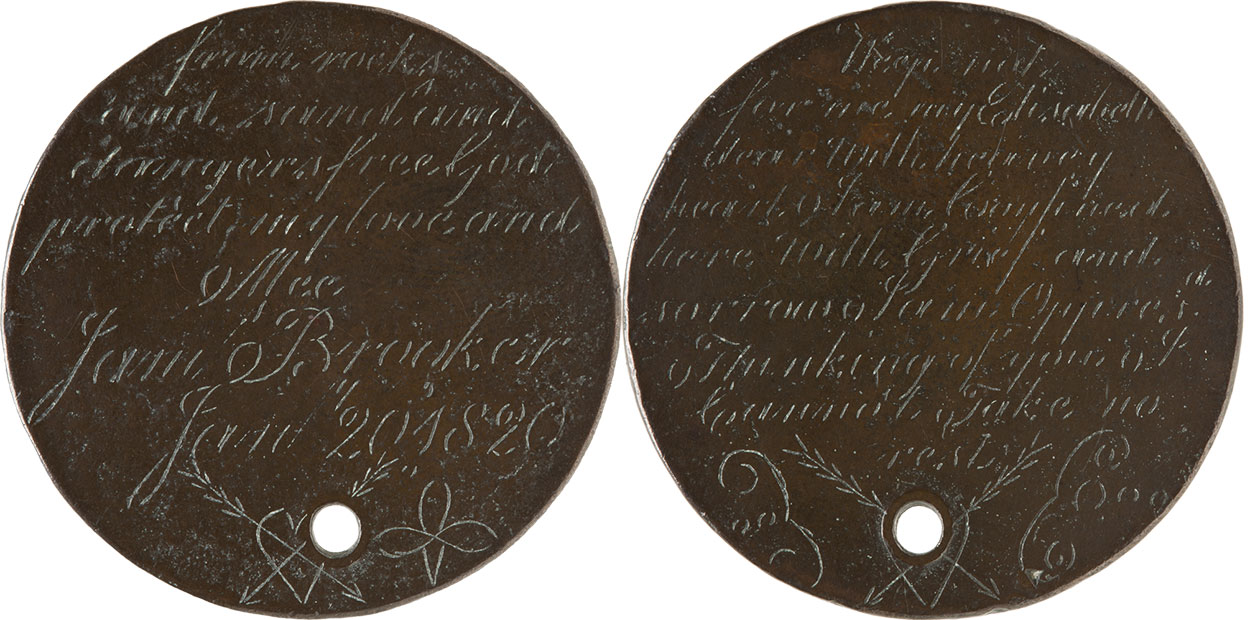 from rocks
and sand and
dangers free God
protect my love and
Mee
Jam Brooker
Jany 20 1828
Weep not
for me my Elisabeth
dear With
heart I am Comfined
here With Grief and
sorrows I am Oppresd
Thinking of you I
Cannot Take no
rest